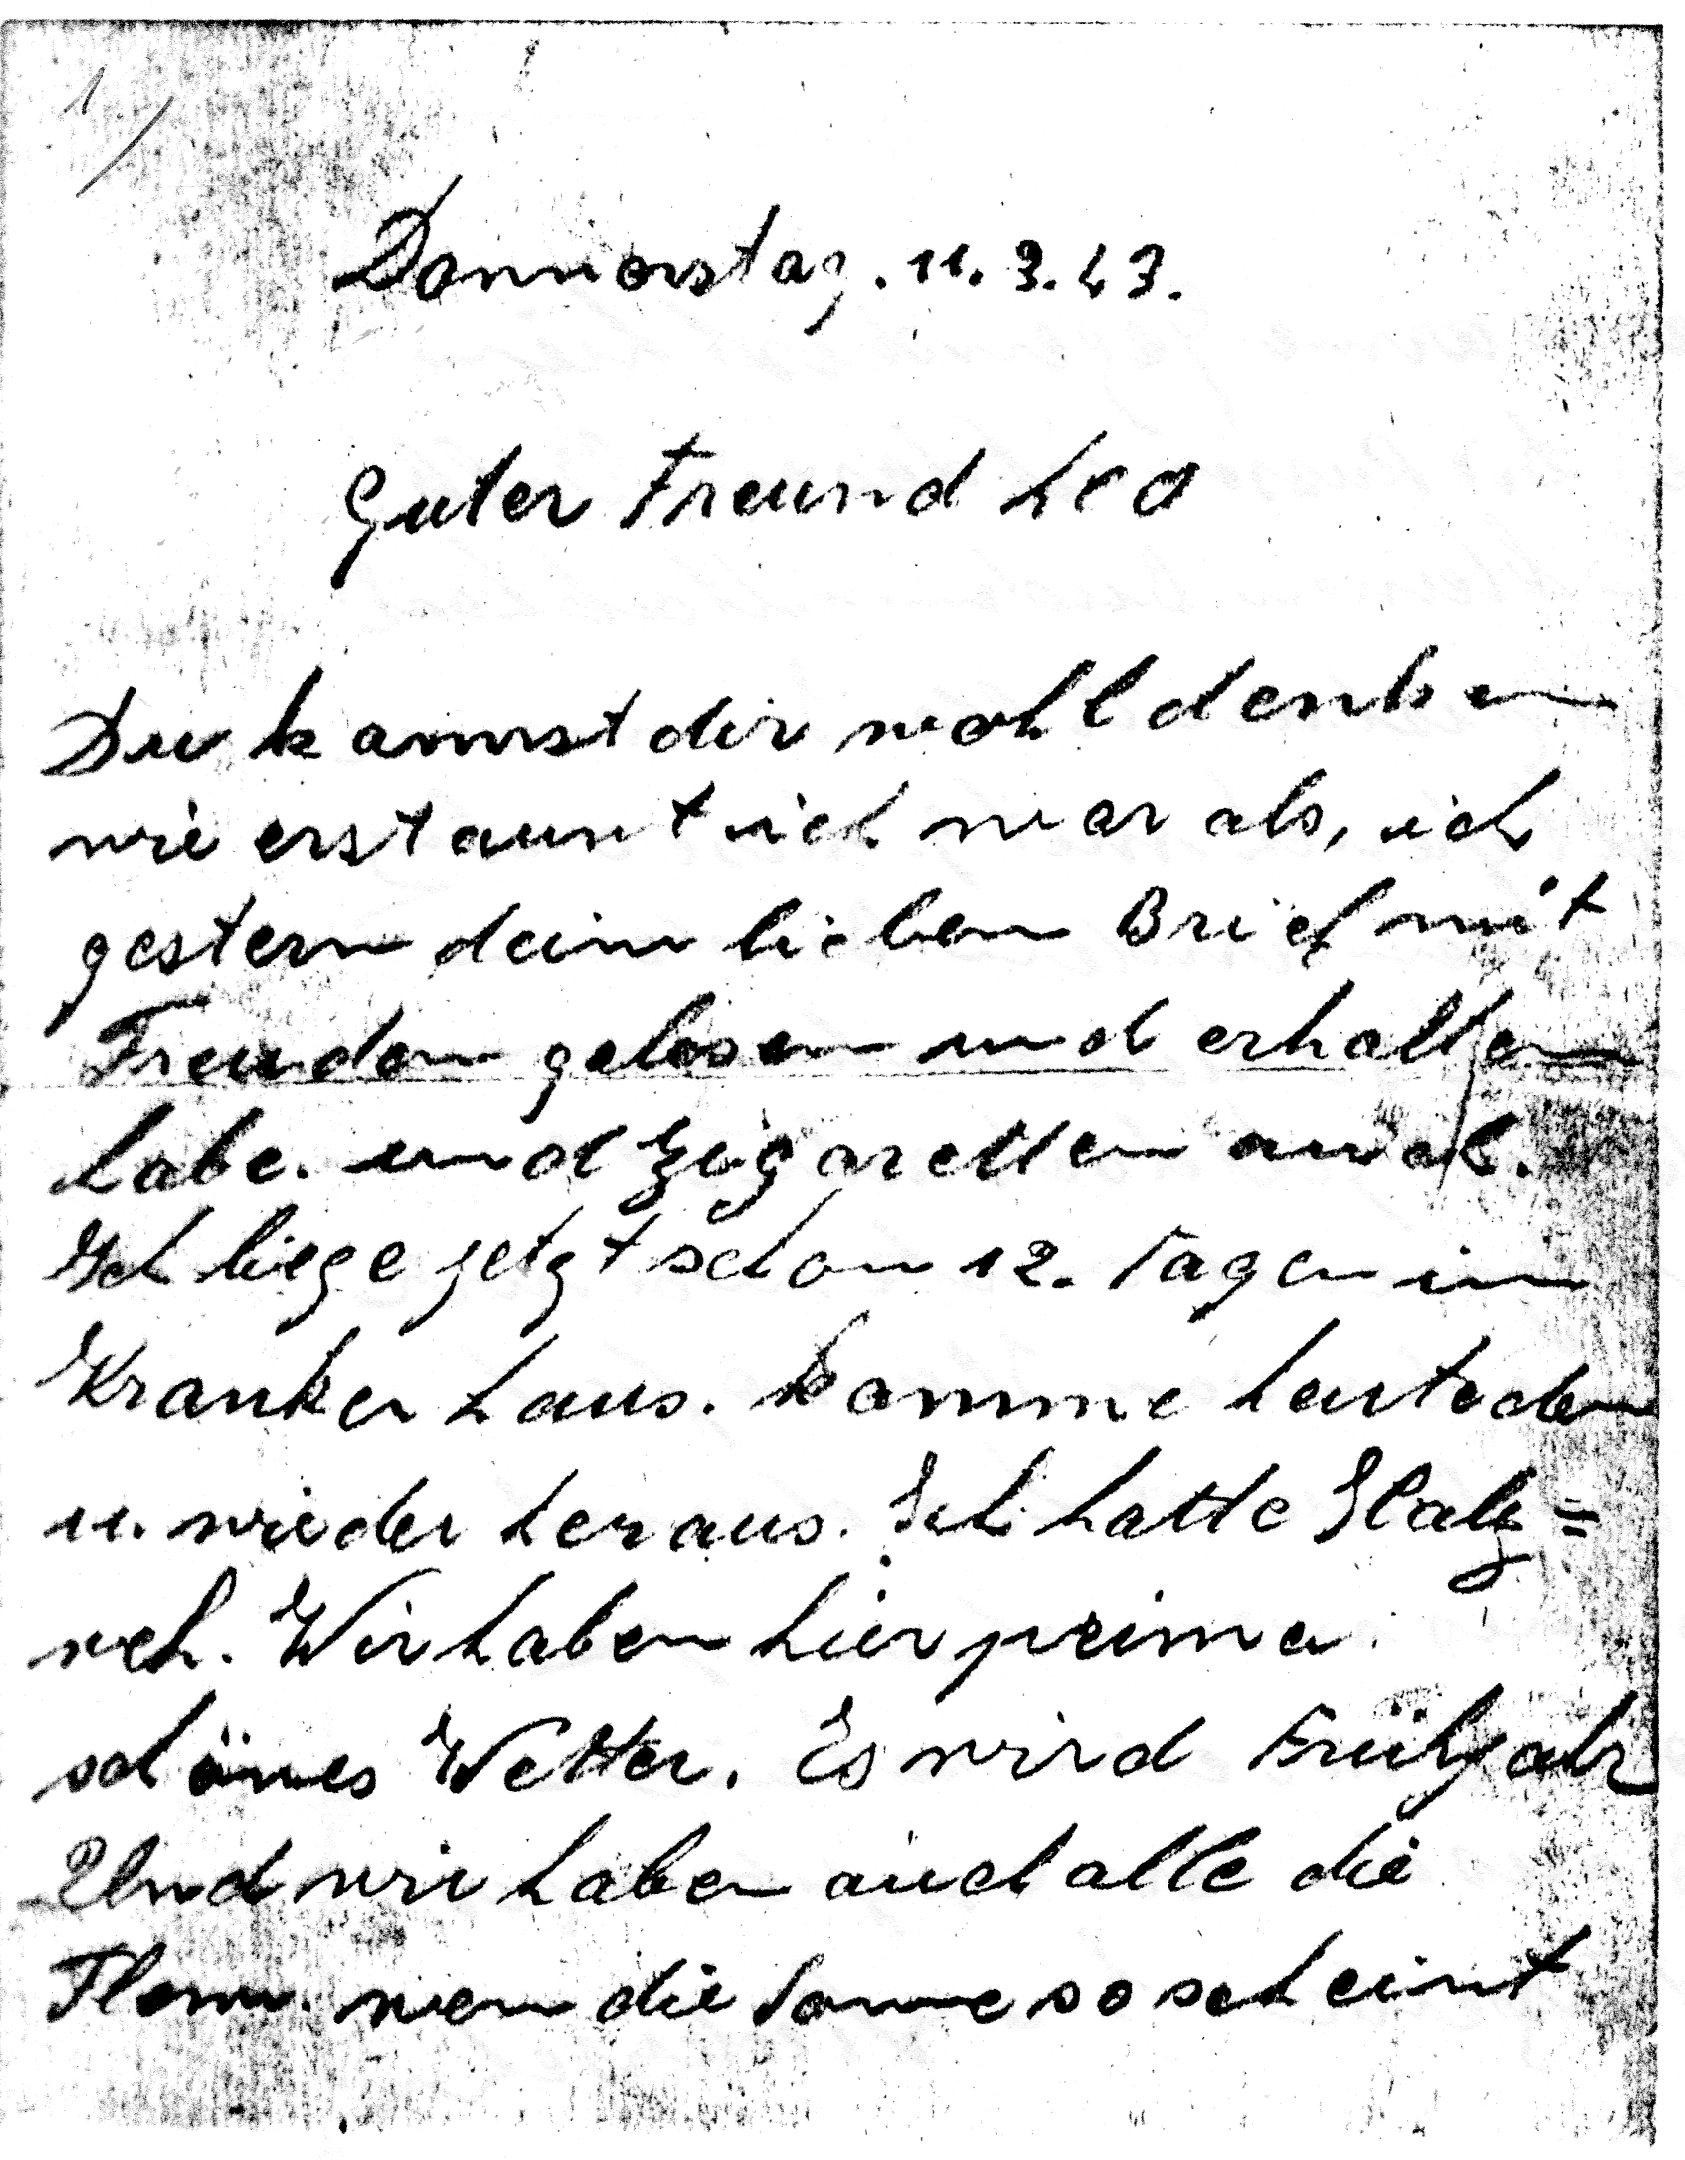 1/
Donnerstag. 11.3.43.
Guter Freund Leo
Du kannst dir wohl denken
wie erstaunt ich war als, ich
gestern dein lieben Brief mit
Freuden gelesen und erhalten
habe. und Zigaretten auch.
Ich liege jetzt schon 12. Tagen im
Krankenhaus. komme heute den
11. wieder heraus. Ich hatte Halz=
weh. Wir haben hier prima
schönes Wetter. Es wird Frühjahr
Und wir haben auch alle die
wen die Sonne so scheint